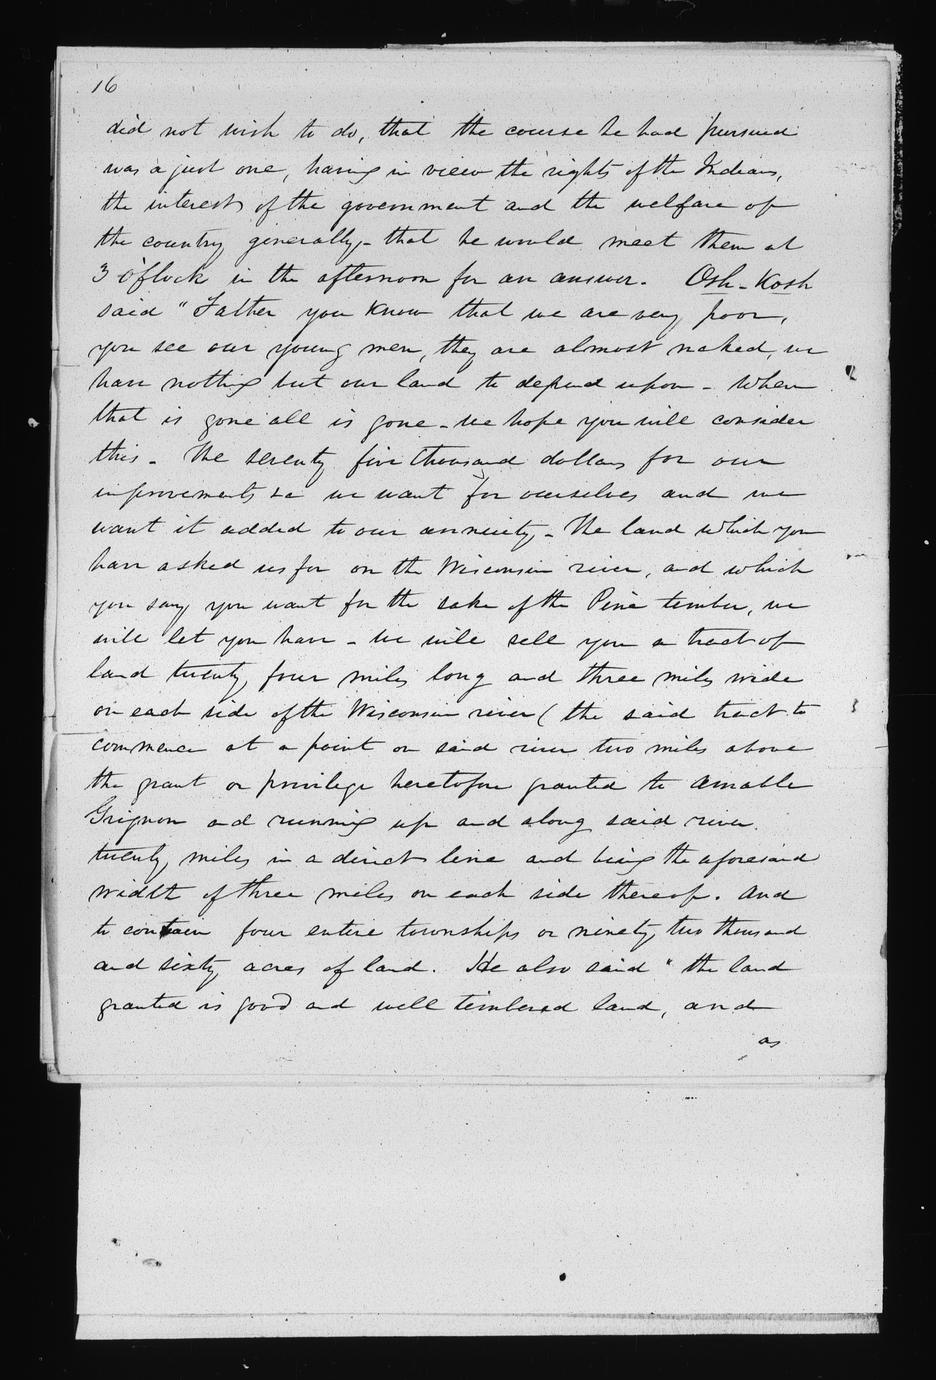 16
did not wish to do, that the course he had pursued
was a just one, having in view the rights of the Indians,
the interests of the government and the welfare of
the country generally,- that he would meet them at
3 o'flock in the afternoon for an answer. Osh-Kosh
said "Father you know that we are very poor,
you see our young men, they are almost naked, we
have nothing but our land to depend upon - When
that is gone all is gone - we hope you will consider
this - The seventy five thousand dollars for our
improvements &c we want for ourselves and we
want it added to our annuity - The land which you
have asked us for on the Wisconsin river, and which
you say you want for the sake of the Pine timber, we
will let you have - We will sell you a tract of
land twenty four miles long and three miles wide
on each side of the Wisconsin river (the said tract to
commence at a point on said river two miles above
the grant or privilege heretofore granted to Amable
Grignon and running up and along said river
twenty miles in a direct line and being the aforesaid
width of three miles on each side thereof. And
to contain four entire townships or ninety two thousand
and sixty acres of land. He also said "the land
granted is good and well timbered land, and
as